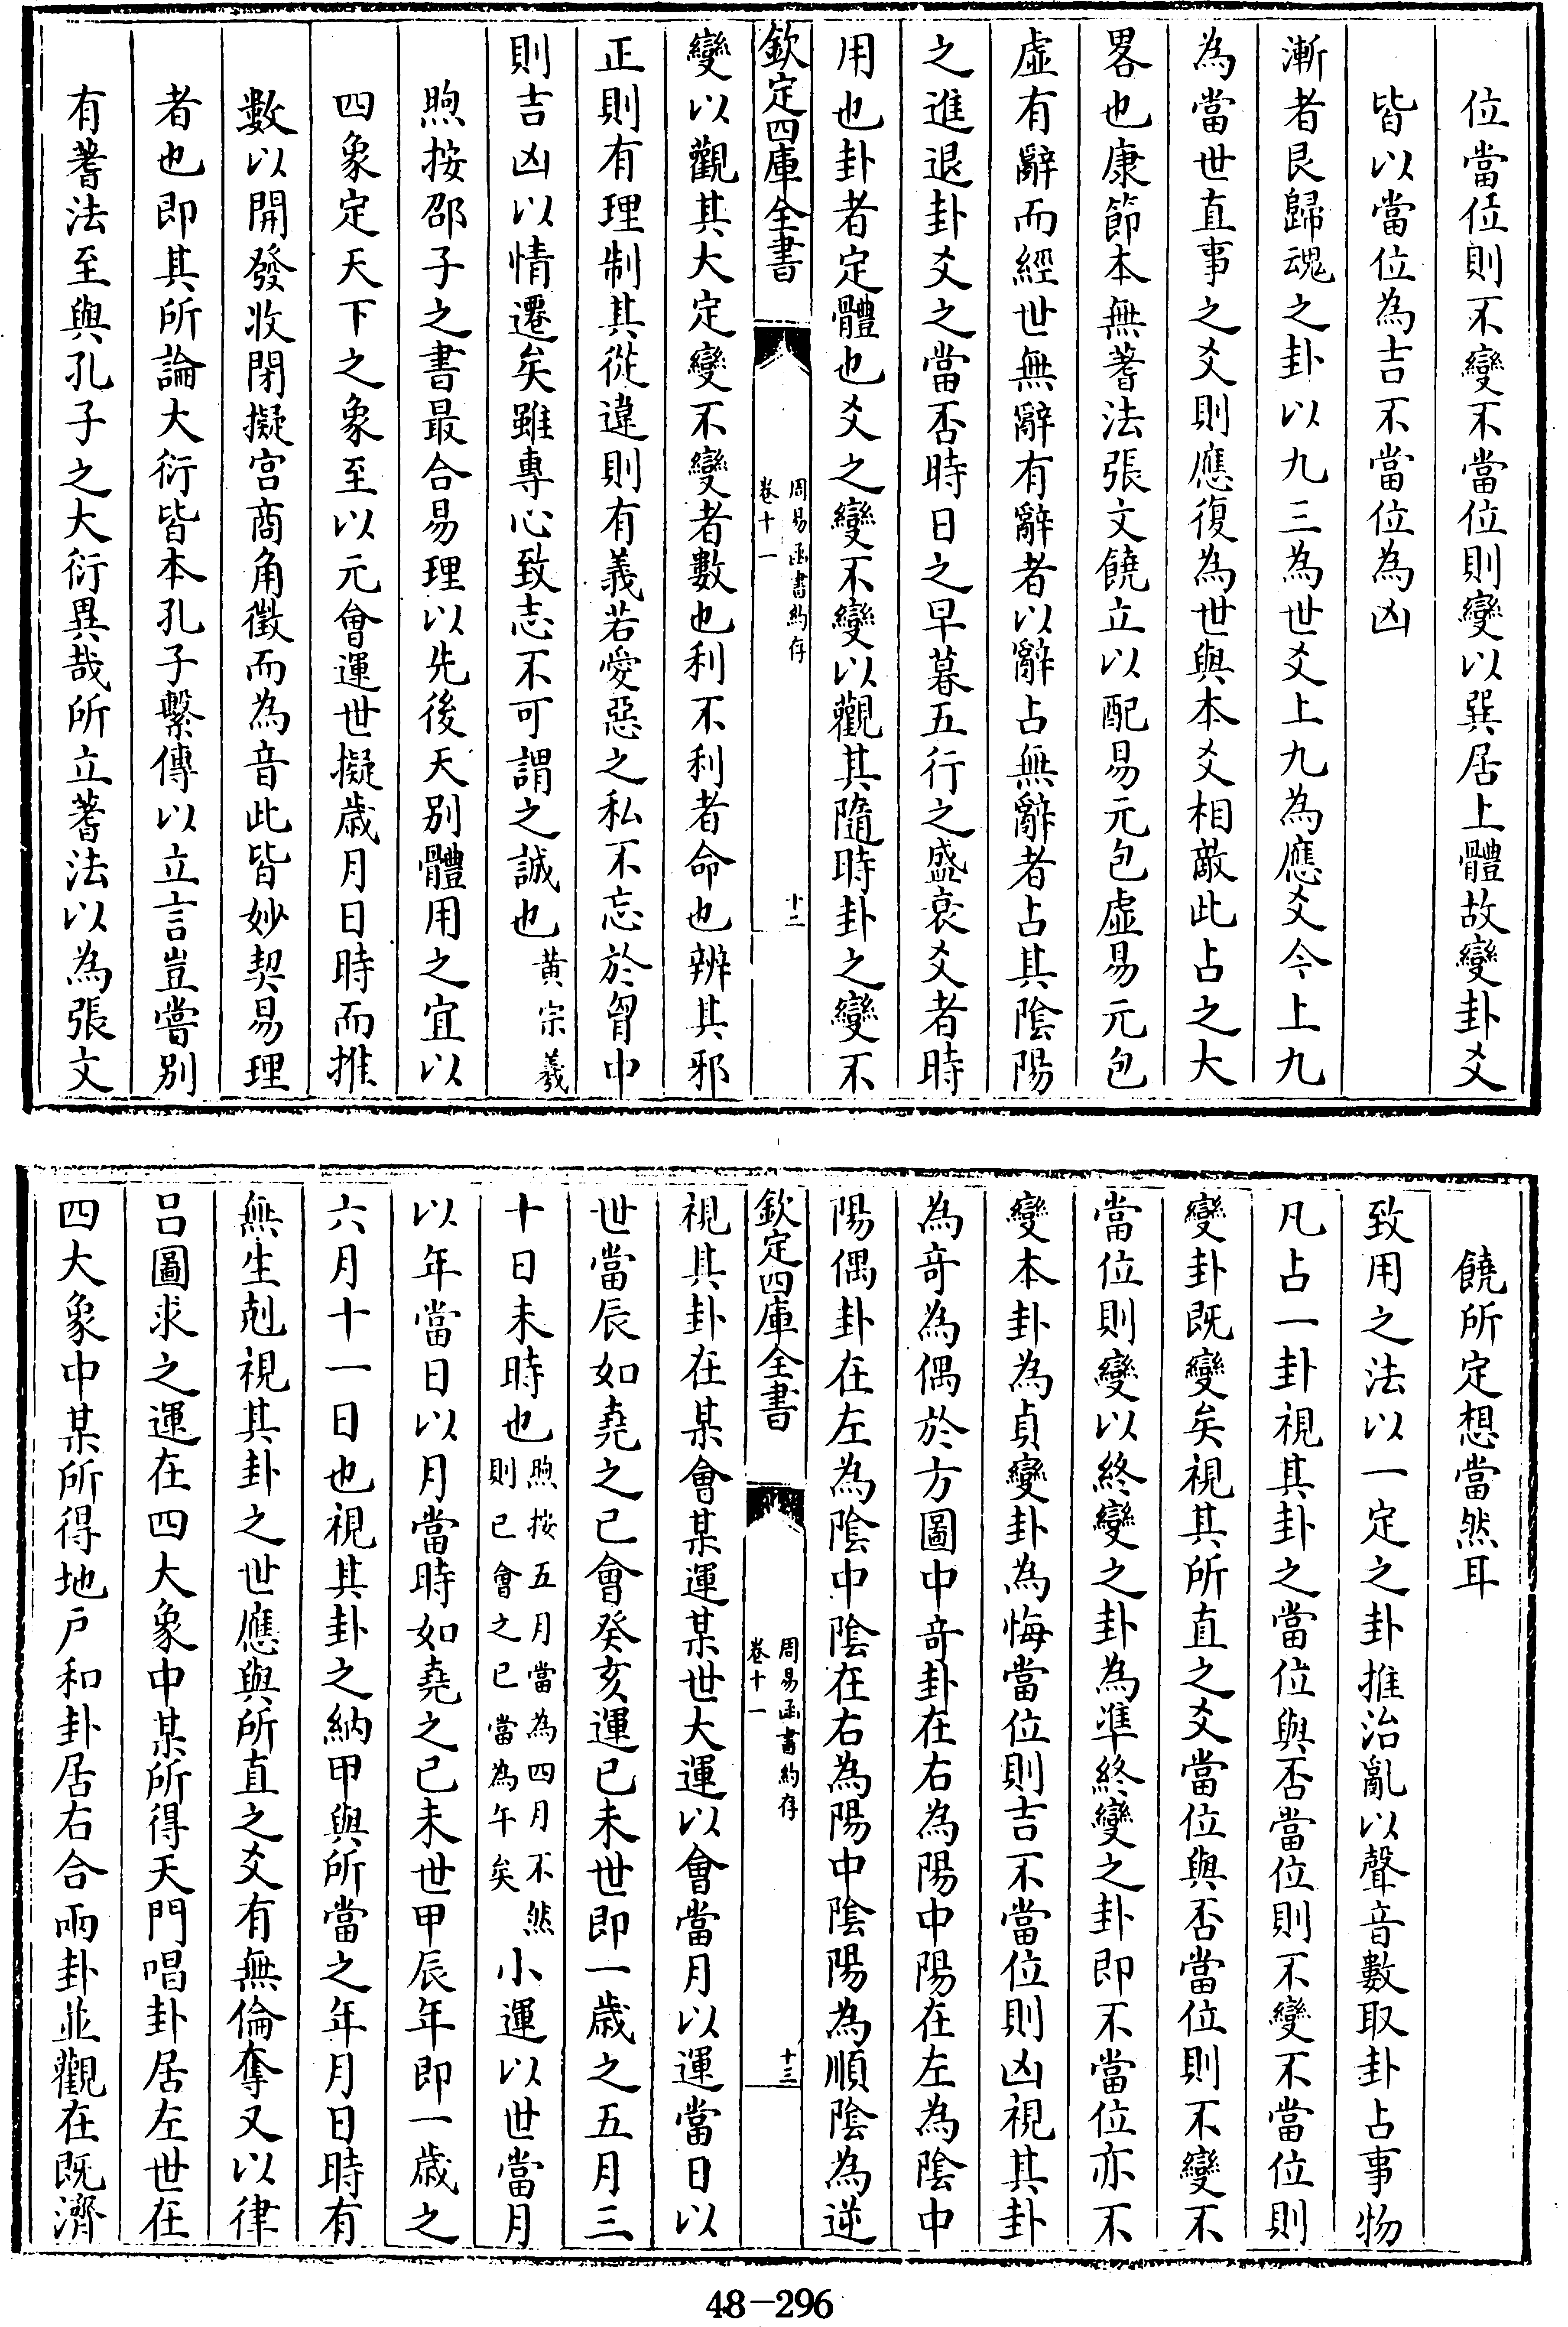 位當位則不變不當位則變以巽居上體故變卦爻
皆以當位為吉不當位為凶
漸者艮歸魂之卦以九三為世爻上九為應爻今上九
為當世直事之爻則應復為世與本爻相敵此占之大
畧也康節本無蓍法張文饒立以配易元包虛易元包
虛有辭而經世無辭有辭者以辭占無辭者占其陰陽
之進退卦爻之當否時日之早暮五行之盛衰爻者時
用也卦者定體也爻之變不變以觀其隨時卦之變不
欽定四庫全書
周易函書約存
卷十一
十二
變以觀其大定變不變者數也利不利者命也辨其邪
正則有理制其從違則有義若愛惡之私不忘於胷中
則吉凶以情遷矣雖專心致志不可謂之誠也黃宗羲
煦按邵子之書最合易理以先後天別體用之宜以
四象定天下之象至以元會運世擬歲月日時而推
數以開發收閉擬宮商角徵而為音此皆妙契易理
者也即其所論大衍皆本孔子繫傳以立言豈嘗別
有蓍法至與孔子之大衍異哉所立蓍法以為張文
饒所定想當然耳
致用之法以一定之卦推治亂以聲音數取卦占事物
凡占一卦視其卦之當位與否當位則不變不當位則
變卦既變矣視其所直之爻當位與否當位則不變不
當位則變以終變之卦為準終變之卦即不當位亦不
變本卦為貞變卦為悔當位則吉不當位則凶視其卦
為竒為偶於方圖中竒卦在右為陽中陽在左為陰中
陽偶卦在左為陰中陰在右為陽中陰陽為順陰為逆
欽定四庫全書
周易函書約存
卷十一
十三
視其卦在某會某運某世大運以會當月以運當日以
世當辰如堯之已會癸亥運已未世即一歲之五月三
十日未時也煦按五月當為四月不然
則已會之已當為午矣小運以世當月
以年當日以月當時如堯之已未世甲辰年即一歲之
六月十一日也視其卦之納甲與所當之年月日時有
無生剋視其卦之世應與所直之爻有無倫奪又以律
呂圖求之運在四大象中某所得天門唱卦居左世在
四大象中某所得地户和卦居右合兩卦並觀在既濟
48-296